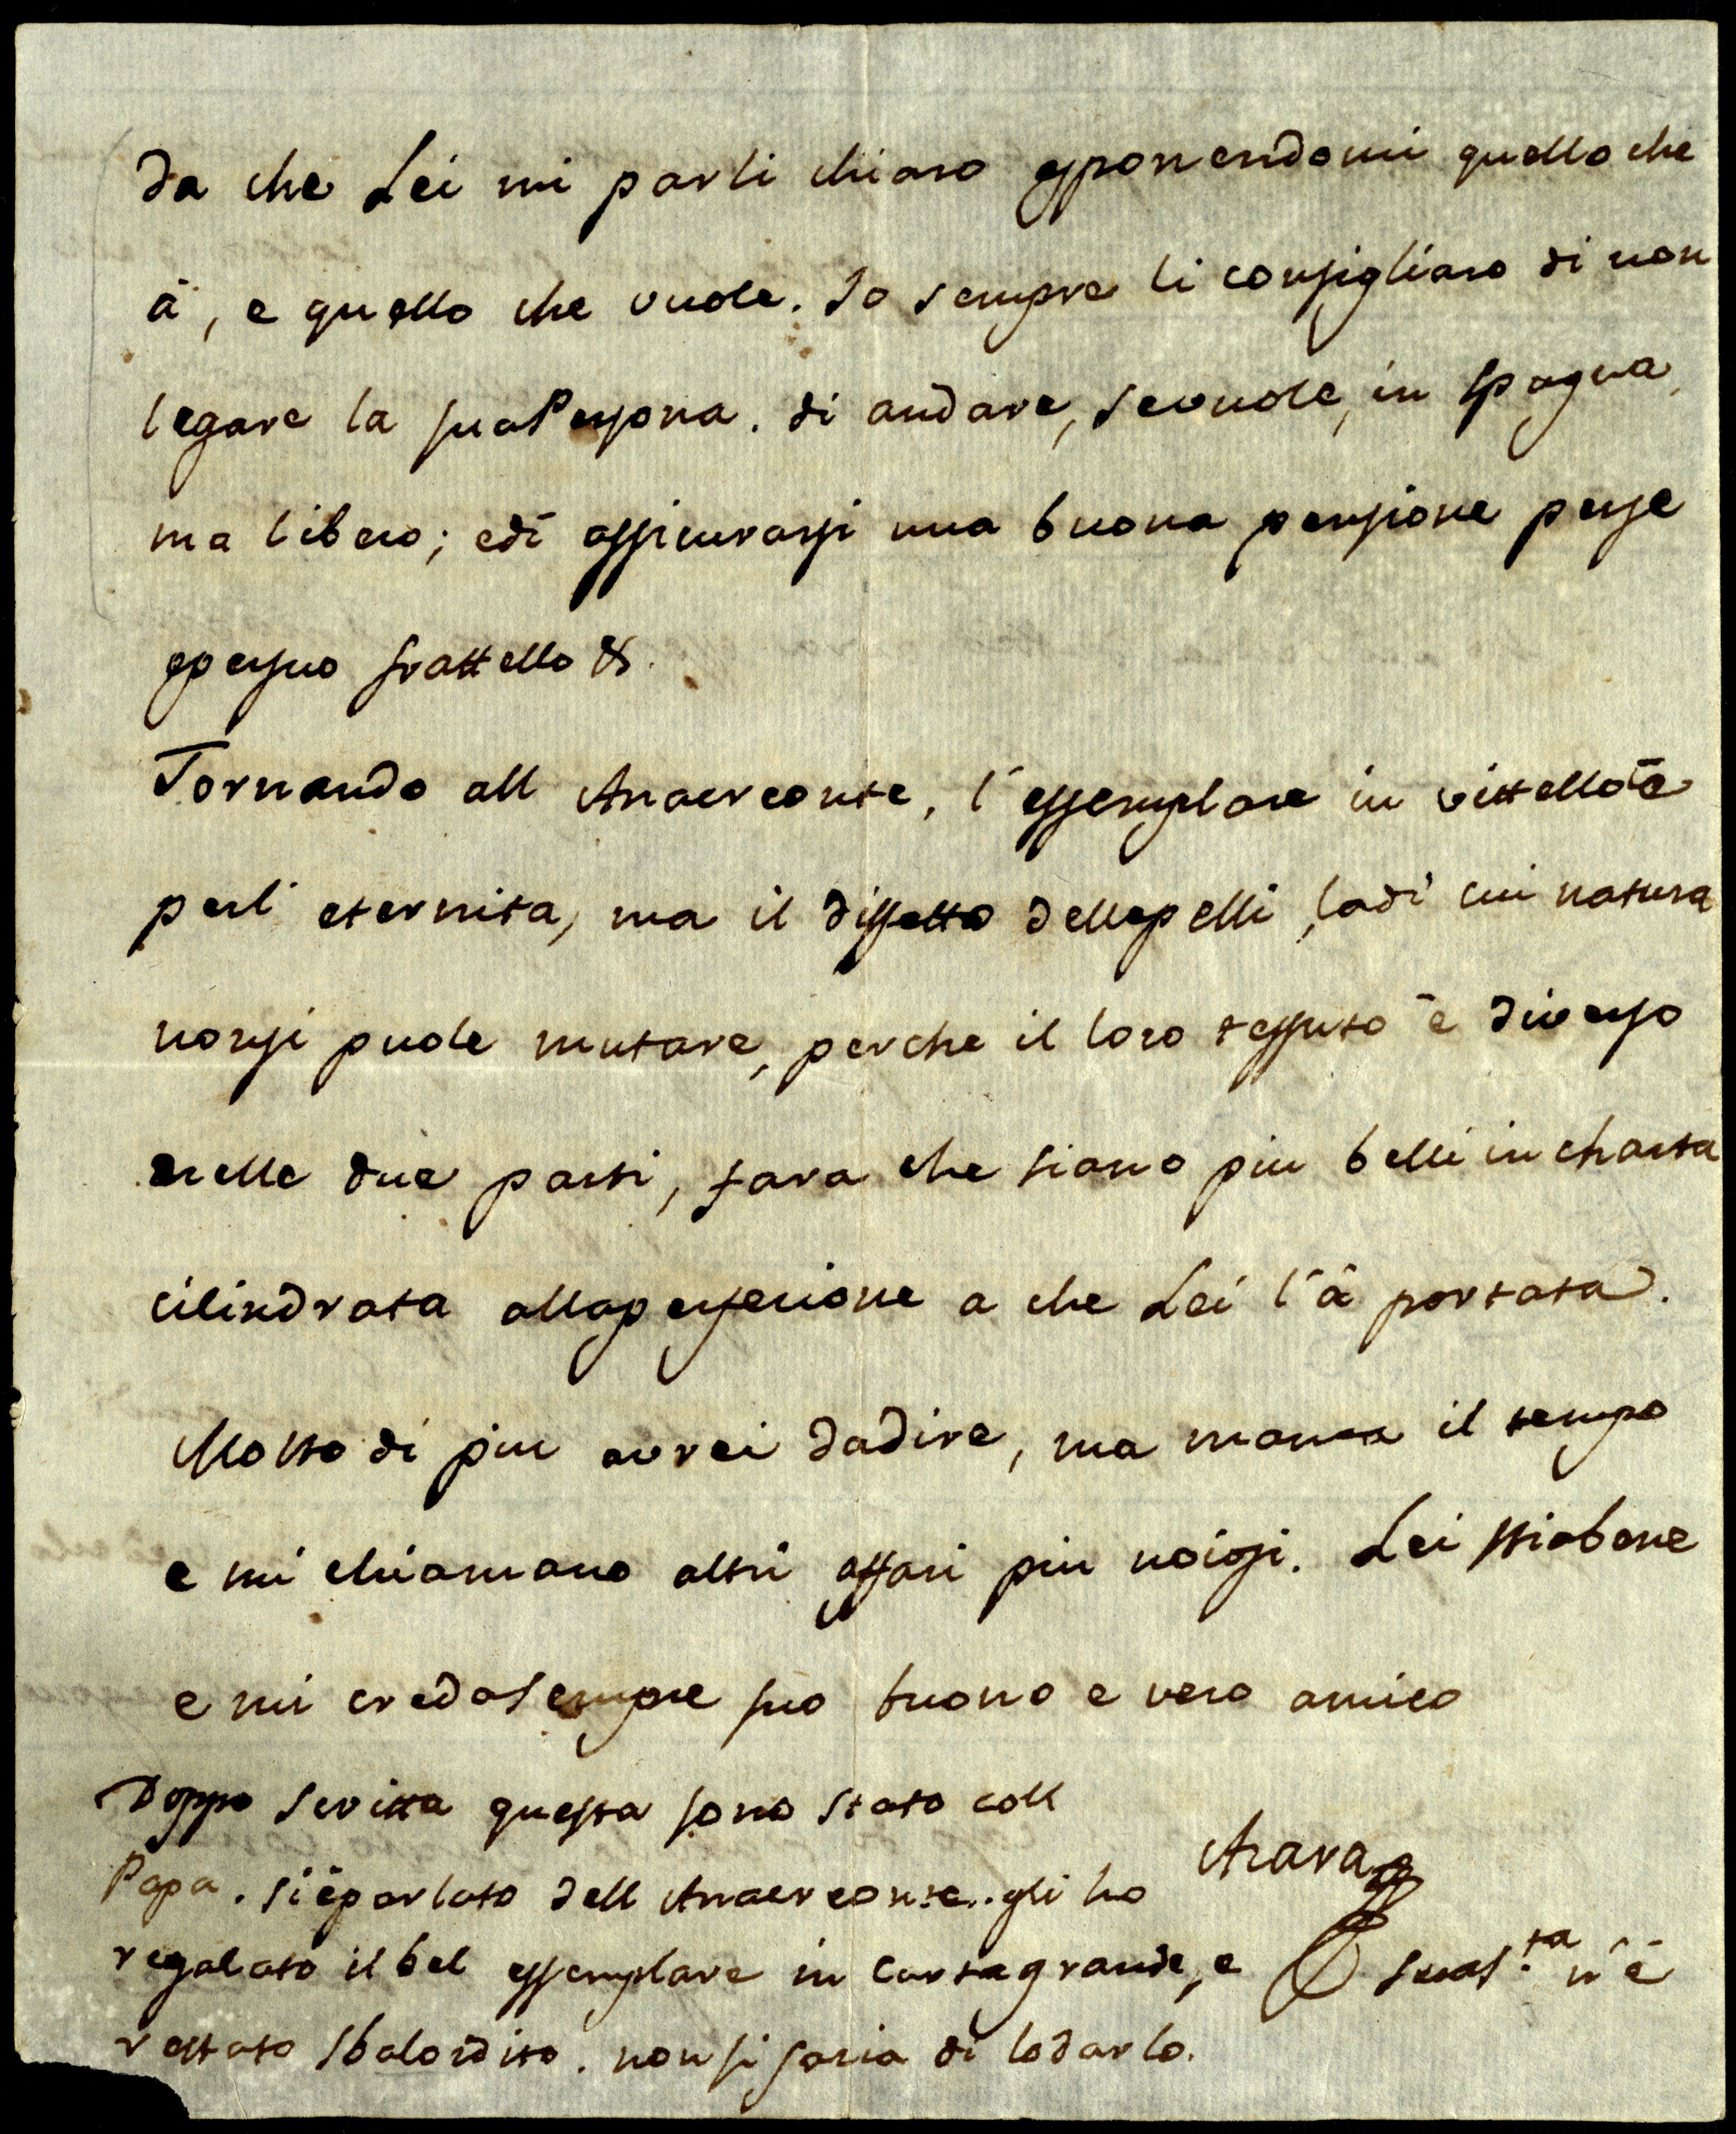 Da che Lei mi parli chiaro esponendomi quello che
à, e quello che vuole. Io sempre li consigliaro di non
legare la suaPersona. di andare, sevuole, in Spagna,
ma libero; edi assicurarsi una buona pensione perse
epersuo frattello &.
Tornando all Anacreonte, l'essemplare in vittello è
perl' eternita, ma il diffetto dellepelli, ladi cui natura
nonsi puole mutare, perche il loro tessuto è diverso
nelle due parti, fara che siano piu belli in charta
cilindrata allaperfecione a che Lei l'à portata.
Molto di piu avrei dadire, ma manca il tempo
e mi chiamano altri affari piu noiosi. Lei stiabene
e mi credasempre suo buono e vero amico
Doppo scritta questa sono stato coll
Azara
Papa. siéparlato dell Anacreonte.. gli ho
regalato il bel essemplare in Cartagrande, e Suas.ta n'è
restato sbalordito. nonsi sazia di lodarlo.